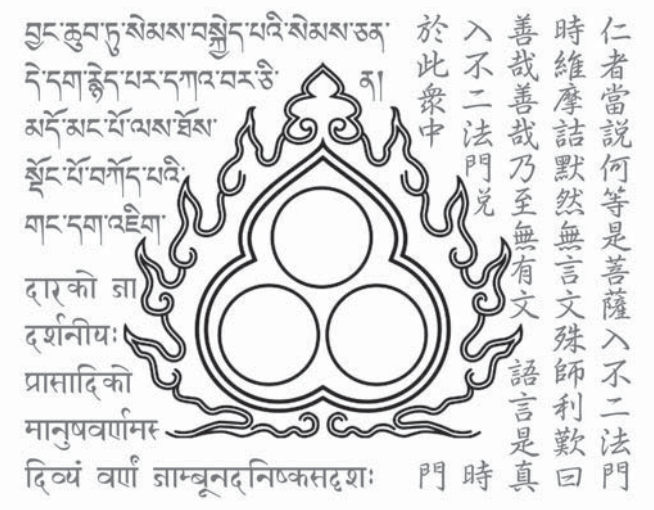 བྱང་ཆུབ་ཏུ་སེམས་བསྐྱེད་པའི་སེམས་ཅན་
དེ་དག་རྙེད་པར་དཀའ་བར་ཅི་ ན།
མདོ་མང་པོ་ལས་ཐོས་
སྡོང་པོ་བཀོད་པའི་
གང་དག་འཇིག་
दारको जा
दर्शनीयः
प्रासादिको
मानुषवर्णम
दिव्यं वर्णं जाम्बूनदनिष्कसदृशः
仁者當説何等是菩薩入不二法門
時維摩詰默然無言文殊師利歎曰
善哉善哉乃至無有文 語言是真
入不二法門兑 時
於此衆中 門